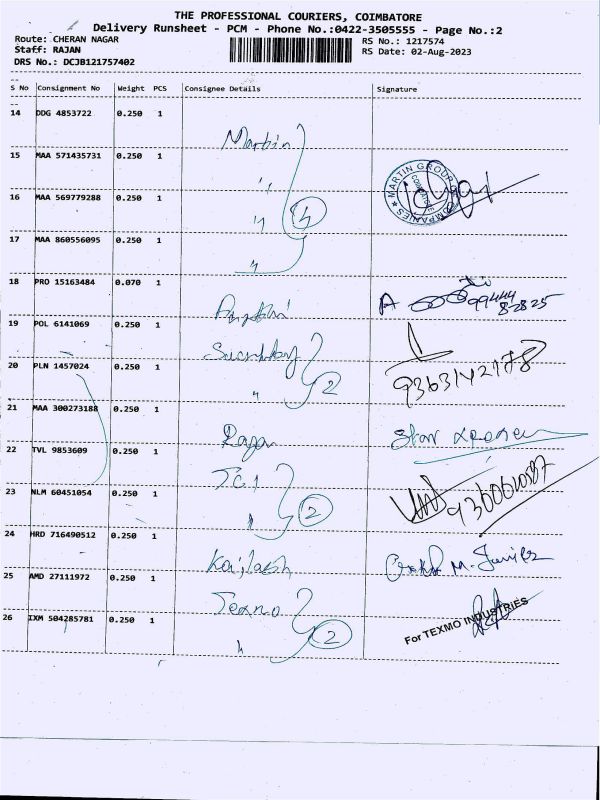 THE PROFESSIONAL COURIERS, COIMBATORE
Delivery Runsheet - PCM - Phone No.:0422-3505555 - Page No.:2
Route: CHERAN NAGAR
RS No.: 1217574
Staff: RAJAN
RS Date: 02-Aug-2023
DRS No.: DCJB121757402
S No Consignment No Weight PCS Consignee Details Signature
14 DDG 4853722 0.250 1
Martin
15 MAA 571435731 0.250 1
MARTIN GROUP COMPANIES COIMBATORE
16 MAA 569779288 0.250 1
4
17 MAA 860556095 0.250 1
18 PRO 15163484 0.070 1
99444
82825
19 POL 6141069 0.250 1
20 PLN 1457024 0.250 1
2
9363142178
21 MAA 300273188 0.250 1
Rajan
Star
22 TVL 9853609 0.250 1
23 NLM 60451054 0.250 1
2
24 HRD 716490512 0.250 1
Kailash
25 AMD 27111972 0.250 1
Texmo
26 IXM 504285781 0.250 1
2
For TEXMO INDUSTRIES